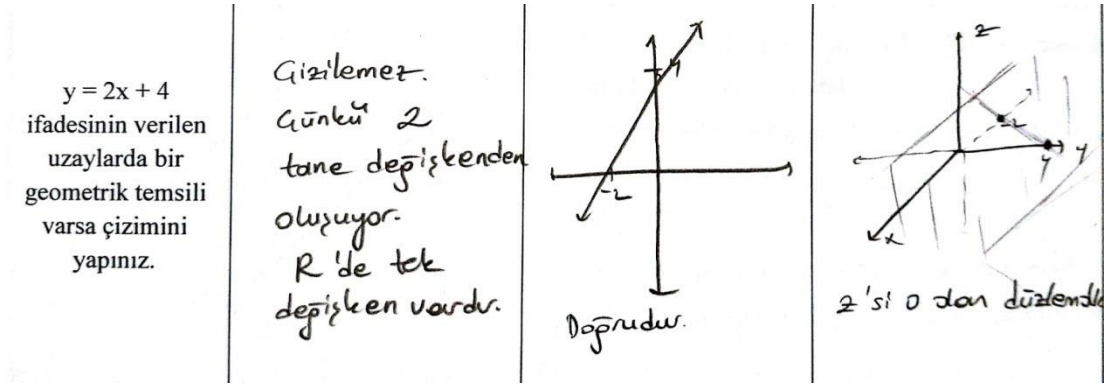 y = 2x + 4
ifadesinin verilen
uzaylarda bir
geometrik temsili
varsa çizimini
yapınız.
Çizilemez.
Çünkü 2
tane değişkenden
oluşuyor.
R'de tek
değişken vardır.
4
-2
Doğrudur.
z
-2
4
y
x
z'si 0 olan düzlemde